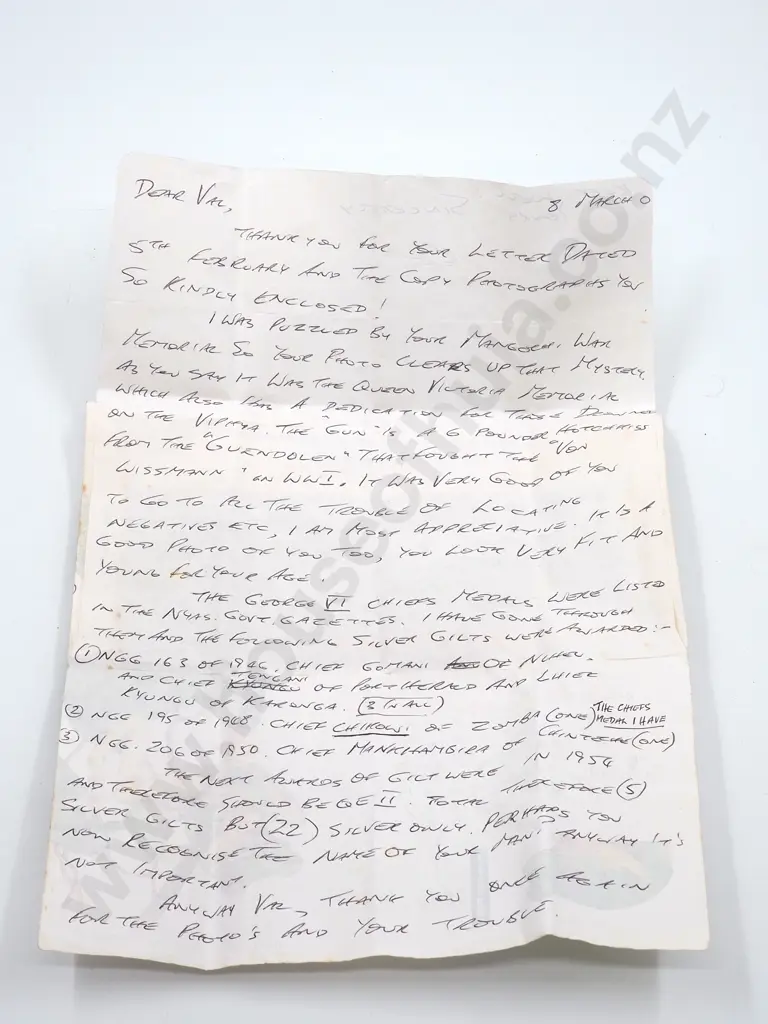 DEAR VAL,
8 MARCH 0
THANK YOU FOR YOUR LETTER DATED
5TH FEBRUARY AND THE COPY PHOTOGRAPHS YOU
SO KINDLY ENCLOSED!
I WAS PUZZLED BY YOUR MANGOCHI WAR
MEMORIAL SO YOUR PHOTO CLEARS UP THAT MYSTERY.
AS YOU SAY IT WAS THE QUEEN VICTORIA MEMORIAL
WHICH ALSO HAS A DEDICATION FOR THOSE DROWNED
ON THE VIPHYA. THE "GUN" IS A 6 POUNDER HOTCHKISS
FROM THE "GUENDOLEN" THAT FOUGHT THE "VON
WISSMANN" IN WWI. IT WAS VERY GOOD OF YOU
TO GO TO ALL THE TROUBLE OF LOCATING
NEGATIVES ETC, I AM MOST APPRECIATIVE. IT IS A
GOOD PHOTO OF YOU TOO, YOU LOOK VERY FIT AND
YOUNG FOR YOUR AGE.
THE GEORGE VI CHIEFS MEDALS WERE LISTED
IN THE NYAS. GOVT. GAZETTES. I HAVE GONE THROUGH
THEM AND THE FOLLOWING SILVER GILTS WERE AWARDED:-
① NGG 163 OF 1946. CHIEF GOMANI OF NCHEU.
AND CHIEF KYUNGU TENGANI OF PORT HERALD AND CHIEF
KYUNGU OF KARONGA. (3 IN ALL)
② NGG 195 OF 1948. CHIEF CHIKOWI OF ZOMBA (ONE) THE CHIEFS MEDAL I HAVE
③ NGG. 206 OF 1950. CHIEF MANKHAMBIRA OF CHINTECHE (ONE)
THE NEXT AWARDS OF GILT WERE IN 1954
AND THEREFORE SHOULD BE QE II. TOTAL THEREFORE (5)
SILVER GILTS BUT (22) SILVER ONLY. PERHAPS YOU
NOW RECOGNISE THE NAME OF YOUR MAN? ANYWAY IT'S
NOT IMPORTANT.
ANYWAY VAL, THANK YOU ONCE AGAIN
FOR THE PHOTO'S AND YOUR TROUBLE.
www.houseofhuia.co.nz